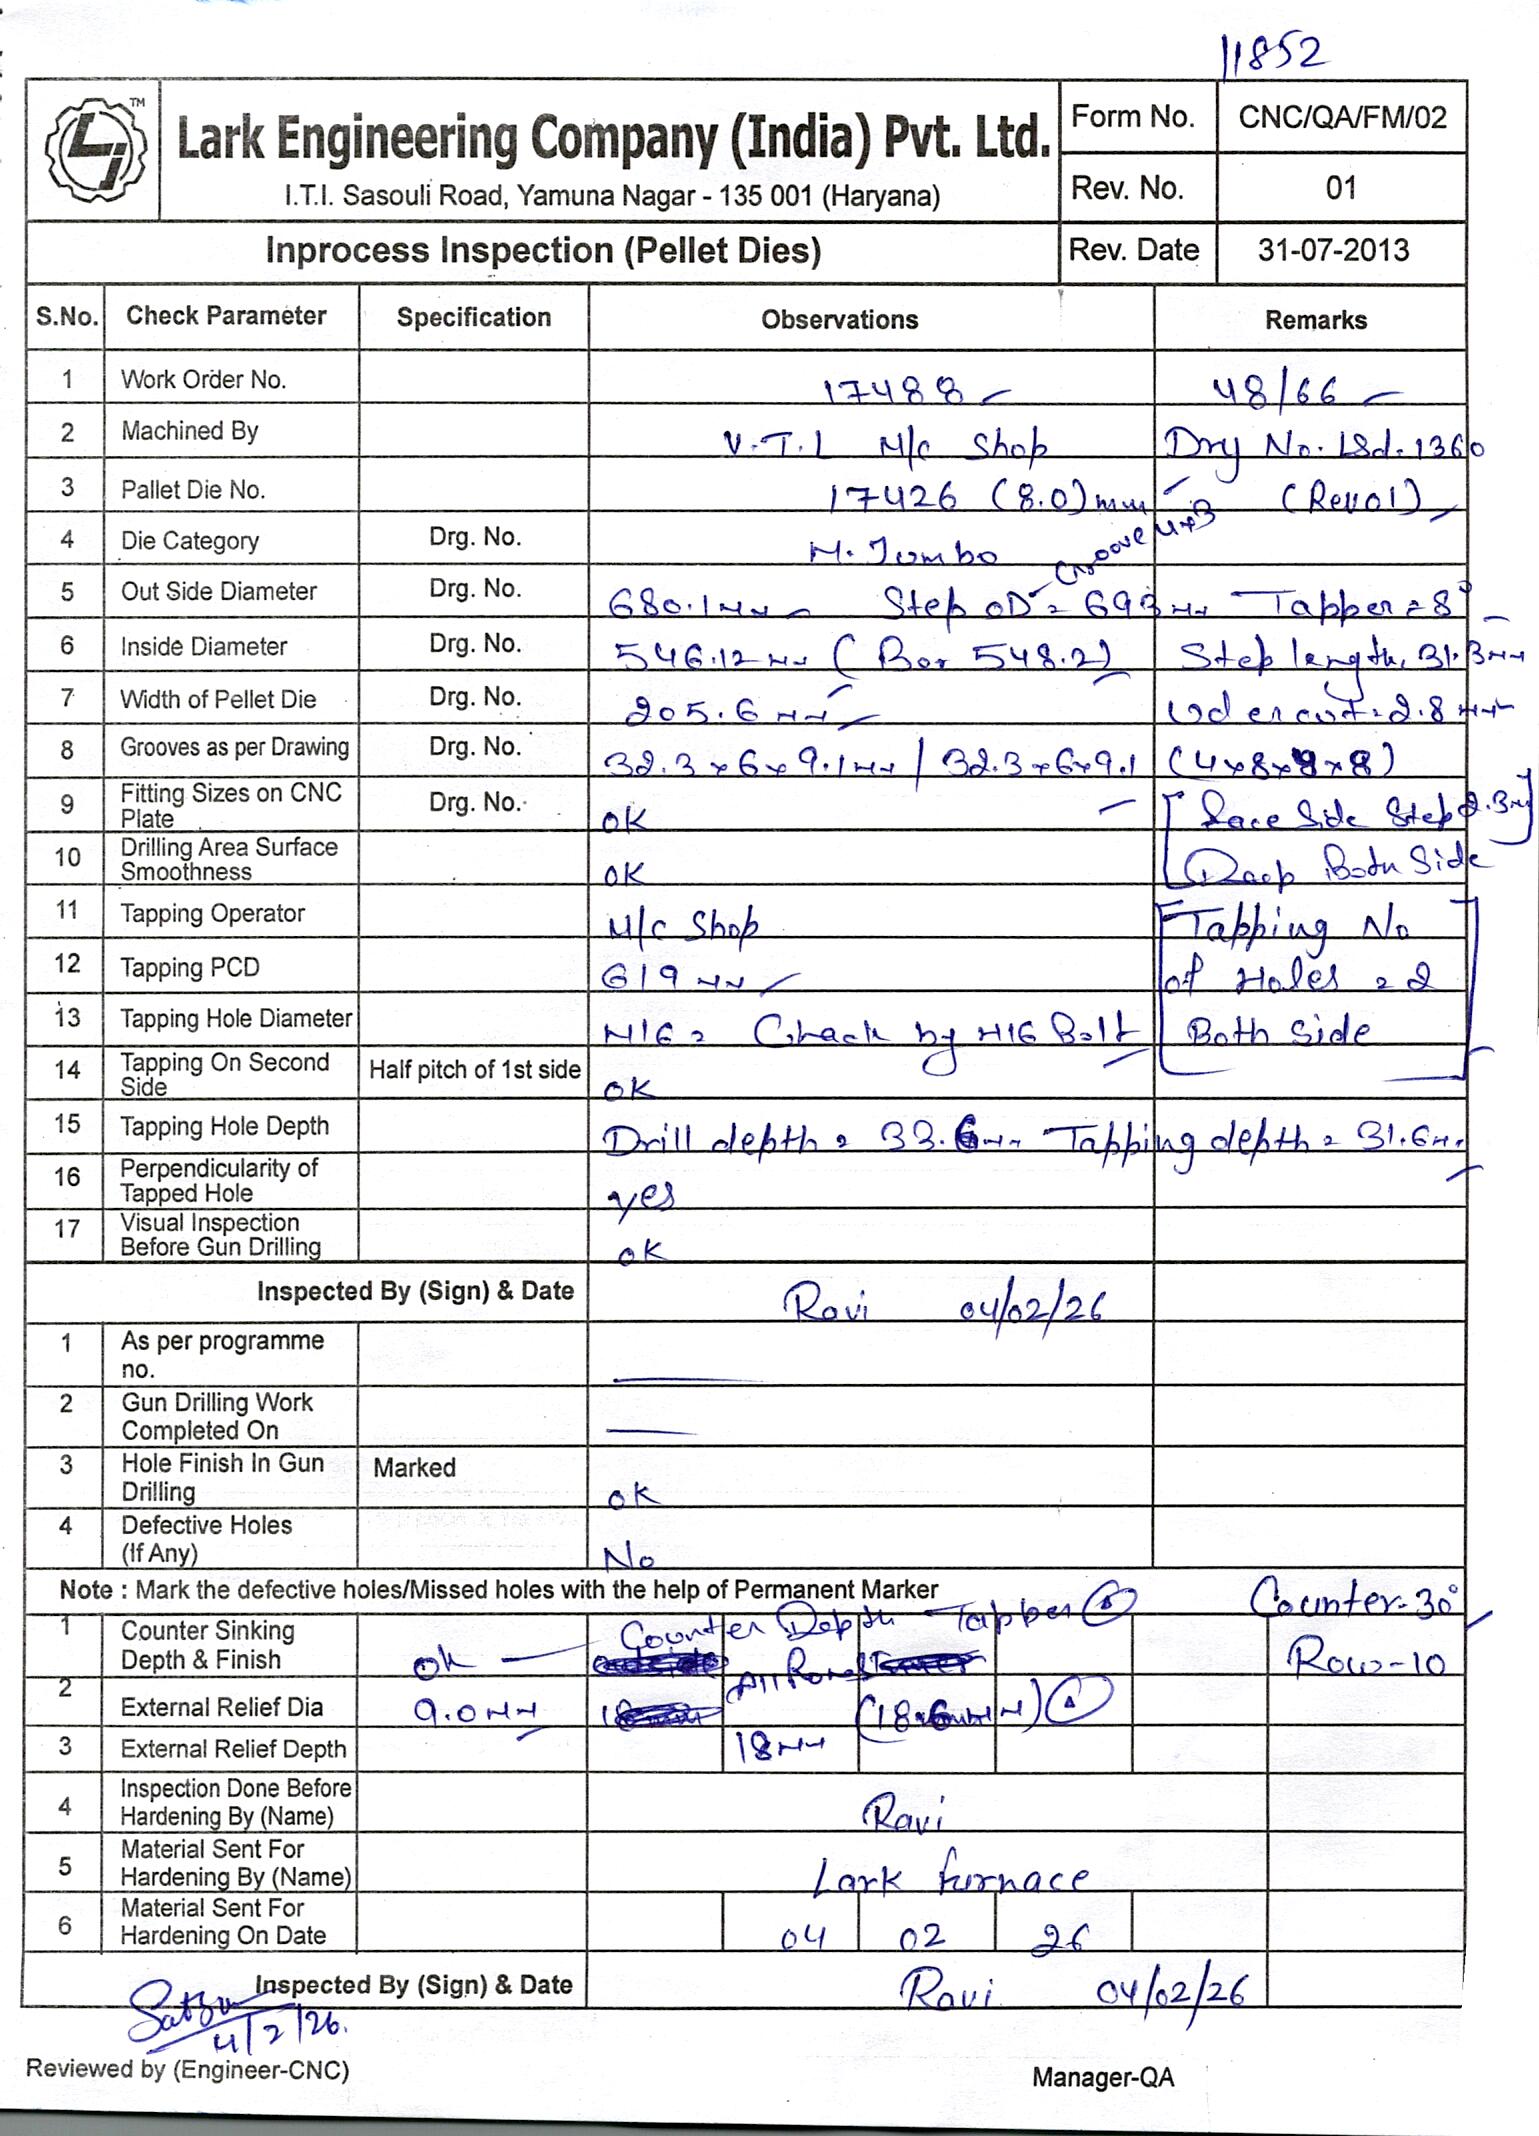 11852
TM
Lark Engineering Company (India) Pvt. Ltd.
I.T.I. Sasouli Road, Yamuna Nagar - 135 001 (Haryana)
Form No. CNC/QA/FM/02
Rev. No. 01
Inprocess Inspection (Pellet Dies) Rev. Date 31-07-2013
S.No. Check Parameter Specification Observations Remarks
1 Work Order No. 17488 48/66
2 Machined By V.T.L M/c Shop Drg No. LSd-1360
3 Pallet Die No. 17426 (8.0) mm (Rev01)
4 Die Category Drg. No. M. Jumbo Groove 4x3
5 Out Side Diameter Drg. No. 680.1 mm Step OD = 693 mm Tapper = 8°
6 Inside Diameter Drg. No. 546.12 mm (Bor 548.2) Step length. 31.3mm
7 Width of Pellet Die Drg. No. 205.6 mm Udercut = 2.8 mm
8 Grooves as per Drawing Drg. No. 32.3x6x9.1mm / 32.3x6x9.1 (4x8x8x8)
9 Fitting Sizes on CNC Plate Drg. No. OK [Face Side Step 2.3mm]
10 Drilling Area Surface Smoothness OK Deep Both Side
11 Tapping Operator M/c Shop Tapping No
12 Tapping PCD 619 mm of Holes = 2
13 Tapping Hole Diameter M16 = Check by M16 Bolt Both Side
14 Tapping On Second Side Half pitch of 1st side OK
15 Tapping Hole Depth Drill depth = 33.6mm Tapping depth = 31.6mm
16 Perpendicularity of Tapped Hole yes
17 Visual Inspection Before Gun Drilling OK
Inspected By (Sign) & Date Ravi 04/02/26
1 As per programme no.
2 Gun Drilling Work Completed On
3 Hole Finish In Gun Drilling Marked OK
4 Defective Holes (If Any) No
Note : Mark the defective holes/Missed holes with the help of Permanent Marker Counter-30°
1 Counter Sinking Depth & Finish OK Counter Depth Tapper All Row Row-10
2 External Relief Dia 9.0mm (18.6mm)
3 External Relief Depth 18mm
4 Inspection Done Before Hardening By (Name) Ravi
5 Material Sent For Hardening By (Name) Lark furnace
6 Material Sent For Hardening On Date 04 02 26
Inspected By (Sign) & Date Ravi 04/02/26
4/2/26.
Reviewed by (Engineer-CNC) Manager-QA